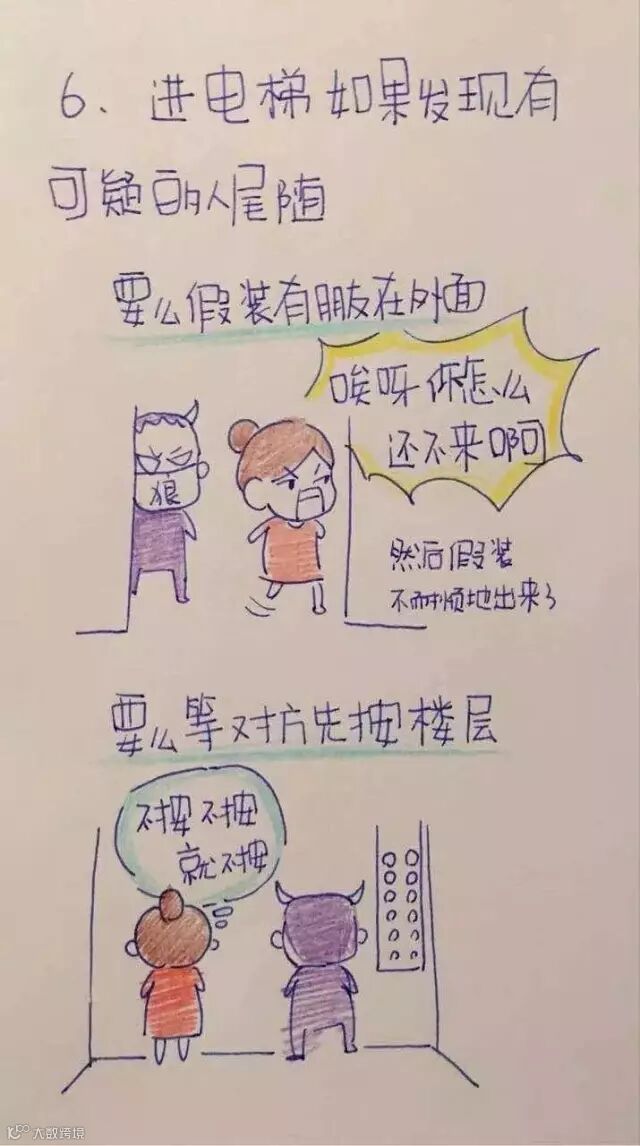 6、进电梯如果发现有
可疑的人尾随
要么假装有朋友在外面
唉呀你怎么
还不来啊
狼
然后假装
不耐烦地出来了
要么等对方先按楼层
不按不按
就不按
大数跨境